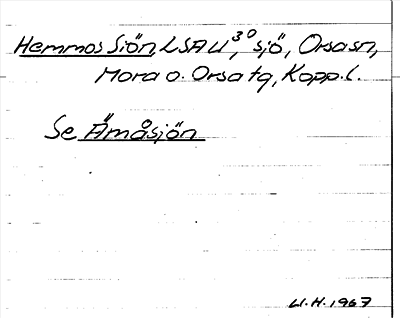 Hemmos Siön, LSA U, 30 sjö, Orsa sn,
Mora o. Orsa tg, Kopp. l.
Se Åmåsjön
U.H. 1967